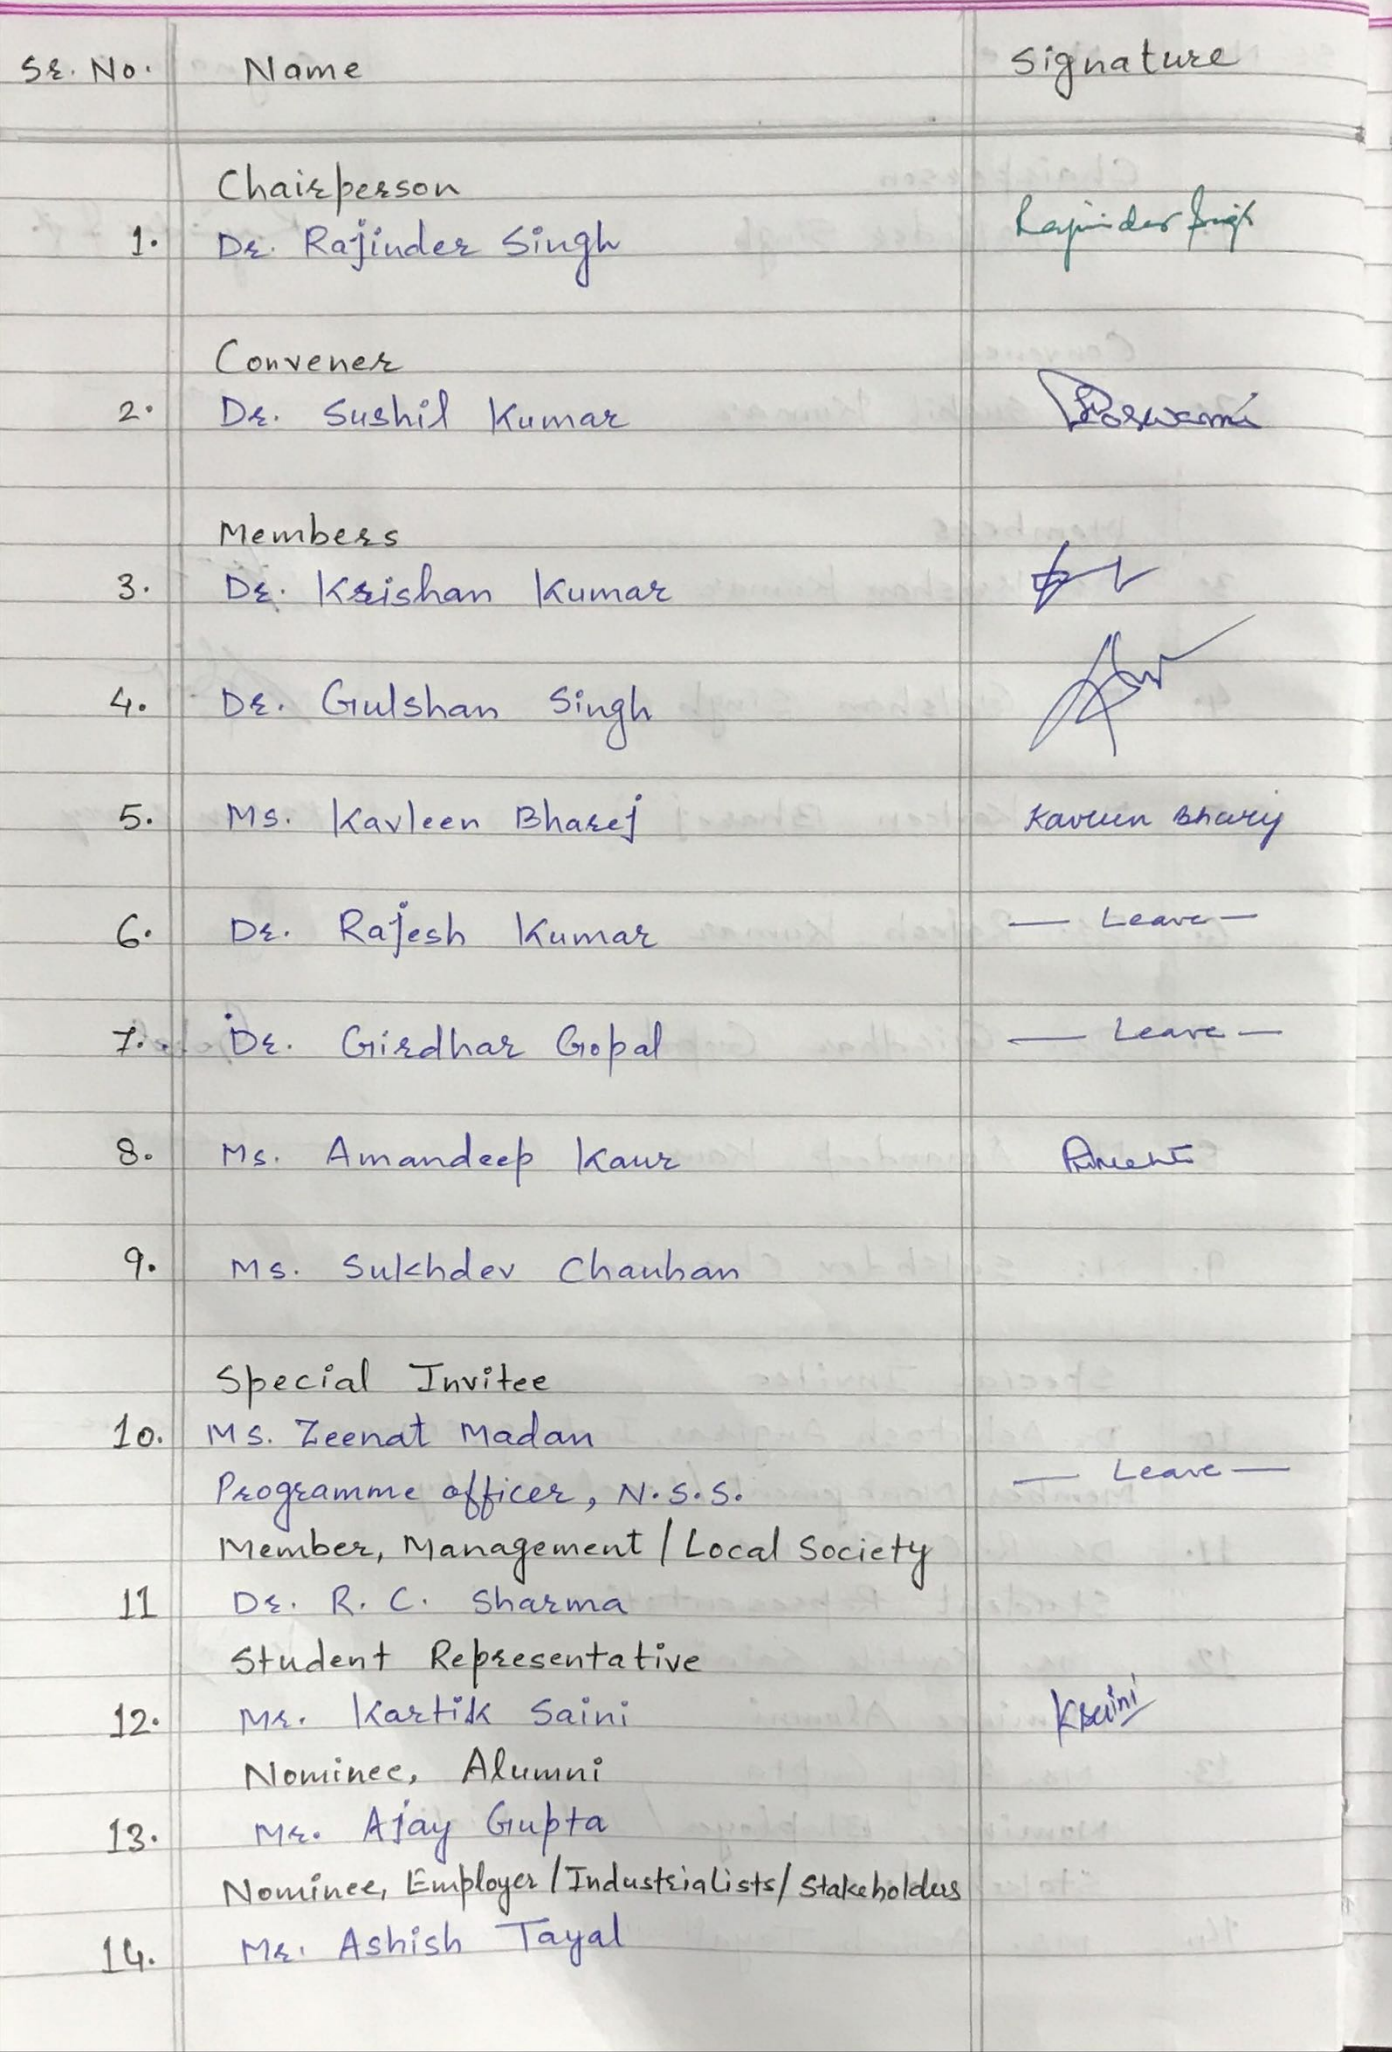 Sr. No. Name Signature
Chairperson
1. Dr. Rajinder Singh Rajinder Singh
Convener
2. Dr. Sushil Kumar
Members
3. Dr. Krishan Kumar
4. Dr. Gulshan Singh
5. Ms. Kavleen Bharej Kavleen Bharej
6. Dr. Rajesh Kumar — Leave —
7. Dr. Girdhar Gopal — Leave —
8. Ms. Amandeep Kaur
9. Ms. Sukhdev Chauhan
Special Invitee
10. Ms. Zeenat Madan
Programme officer, N.S.S. — Leave —
Member, Management / Local Society
11 Dr. R. C. Sharma
Student Representative
12. Mr. Kartik Saini KSaini
Nominee, Alumni
13. Mr. Ajay Gupta
Nominee, Employer / Industrialists / Stakeholders
14. Mr. Ashish Tayal